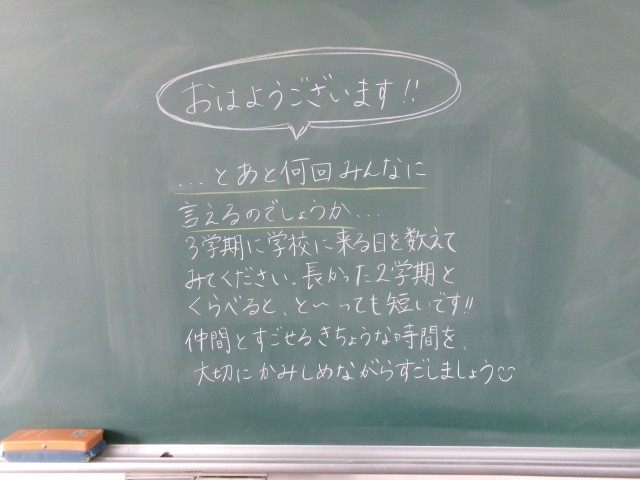 おはようございます!!
...とあと何回みんなに
言えるのでしょうか...
3学期に学校に来る日を数えて
みてください。長かった2学期と
くらべると、と〜っても短いです!!
仲間とすごせるきちょうな時間を、
大切にかみしめながらすごしましょう☺